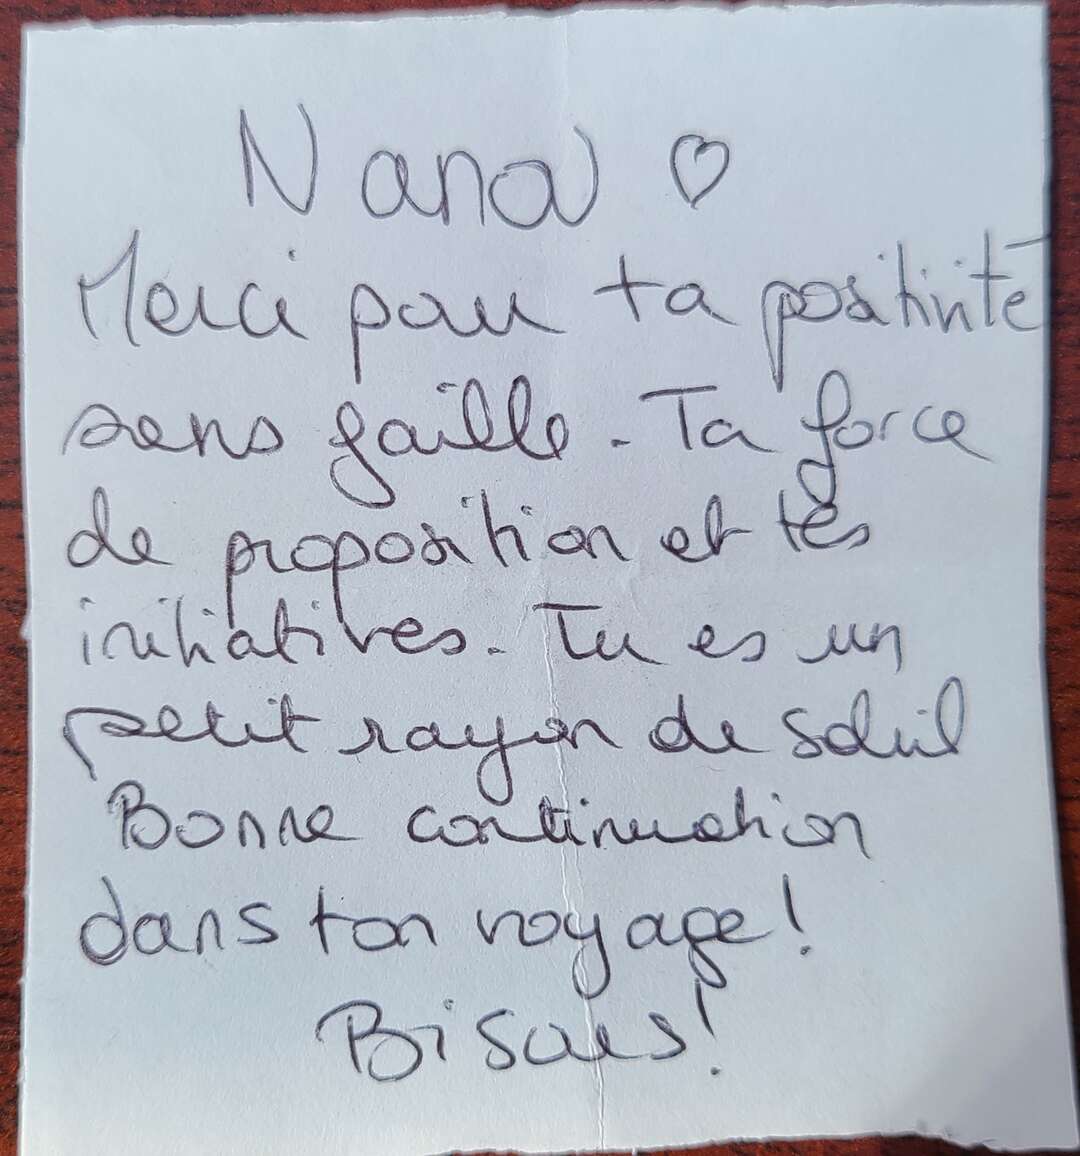 Nana ♡
Merci pour ta positivité
sans faille. Ta force
de proposition et tes
initiatives. Tu es un
petit rayon de soleil
Bonne continuation
dans ton voyage!
Bisous!